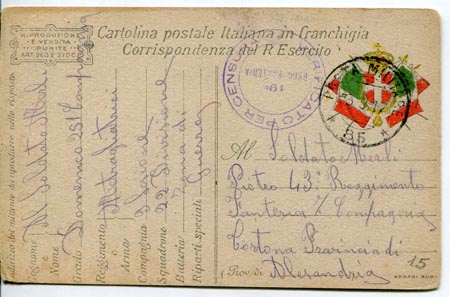 RIPRODUZIONE
E VENDITA
PUNITE
ART. 285 E 27 COD.
Cartolina postale Italiana in Franchigia
Corrispondenza del R. Esercito
VERIFICATO PER CENSURA
19°
REGG. FANTERIA
POSTA MILITARE
* 95 *
Al Soldato Merli
Pietro 43° Reggimento
Fanteria 7 Compagnia
Tortona Provincia di
(Prov. di Alesandria
15
Indirizzo del mittente da riprodurre nella risposta
Cognome Al Soldato Merli
Nome Domenico 251 Compagnia
Grado
Reggimento Mitragliatrici
o
Arma
Compagnia
Squadrone 22 Divisione
Batteria Zona di
Riparti speciali Guerra